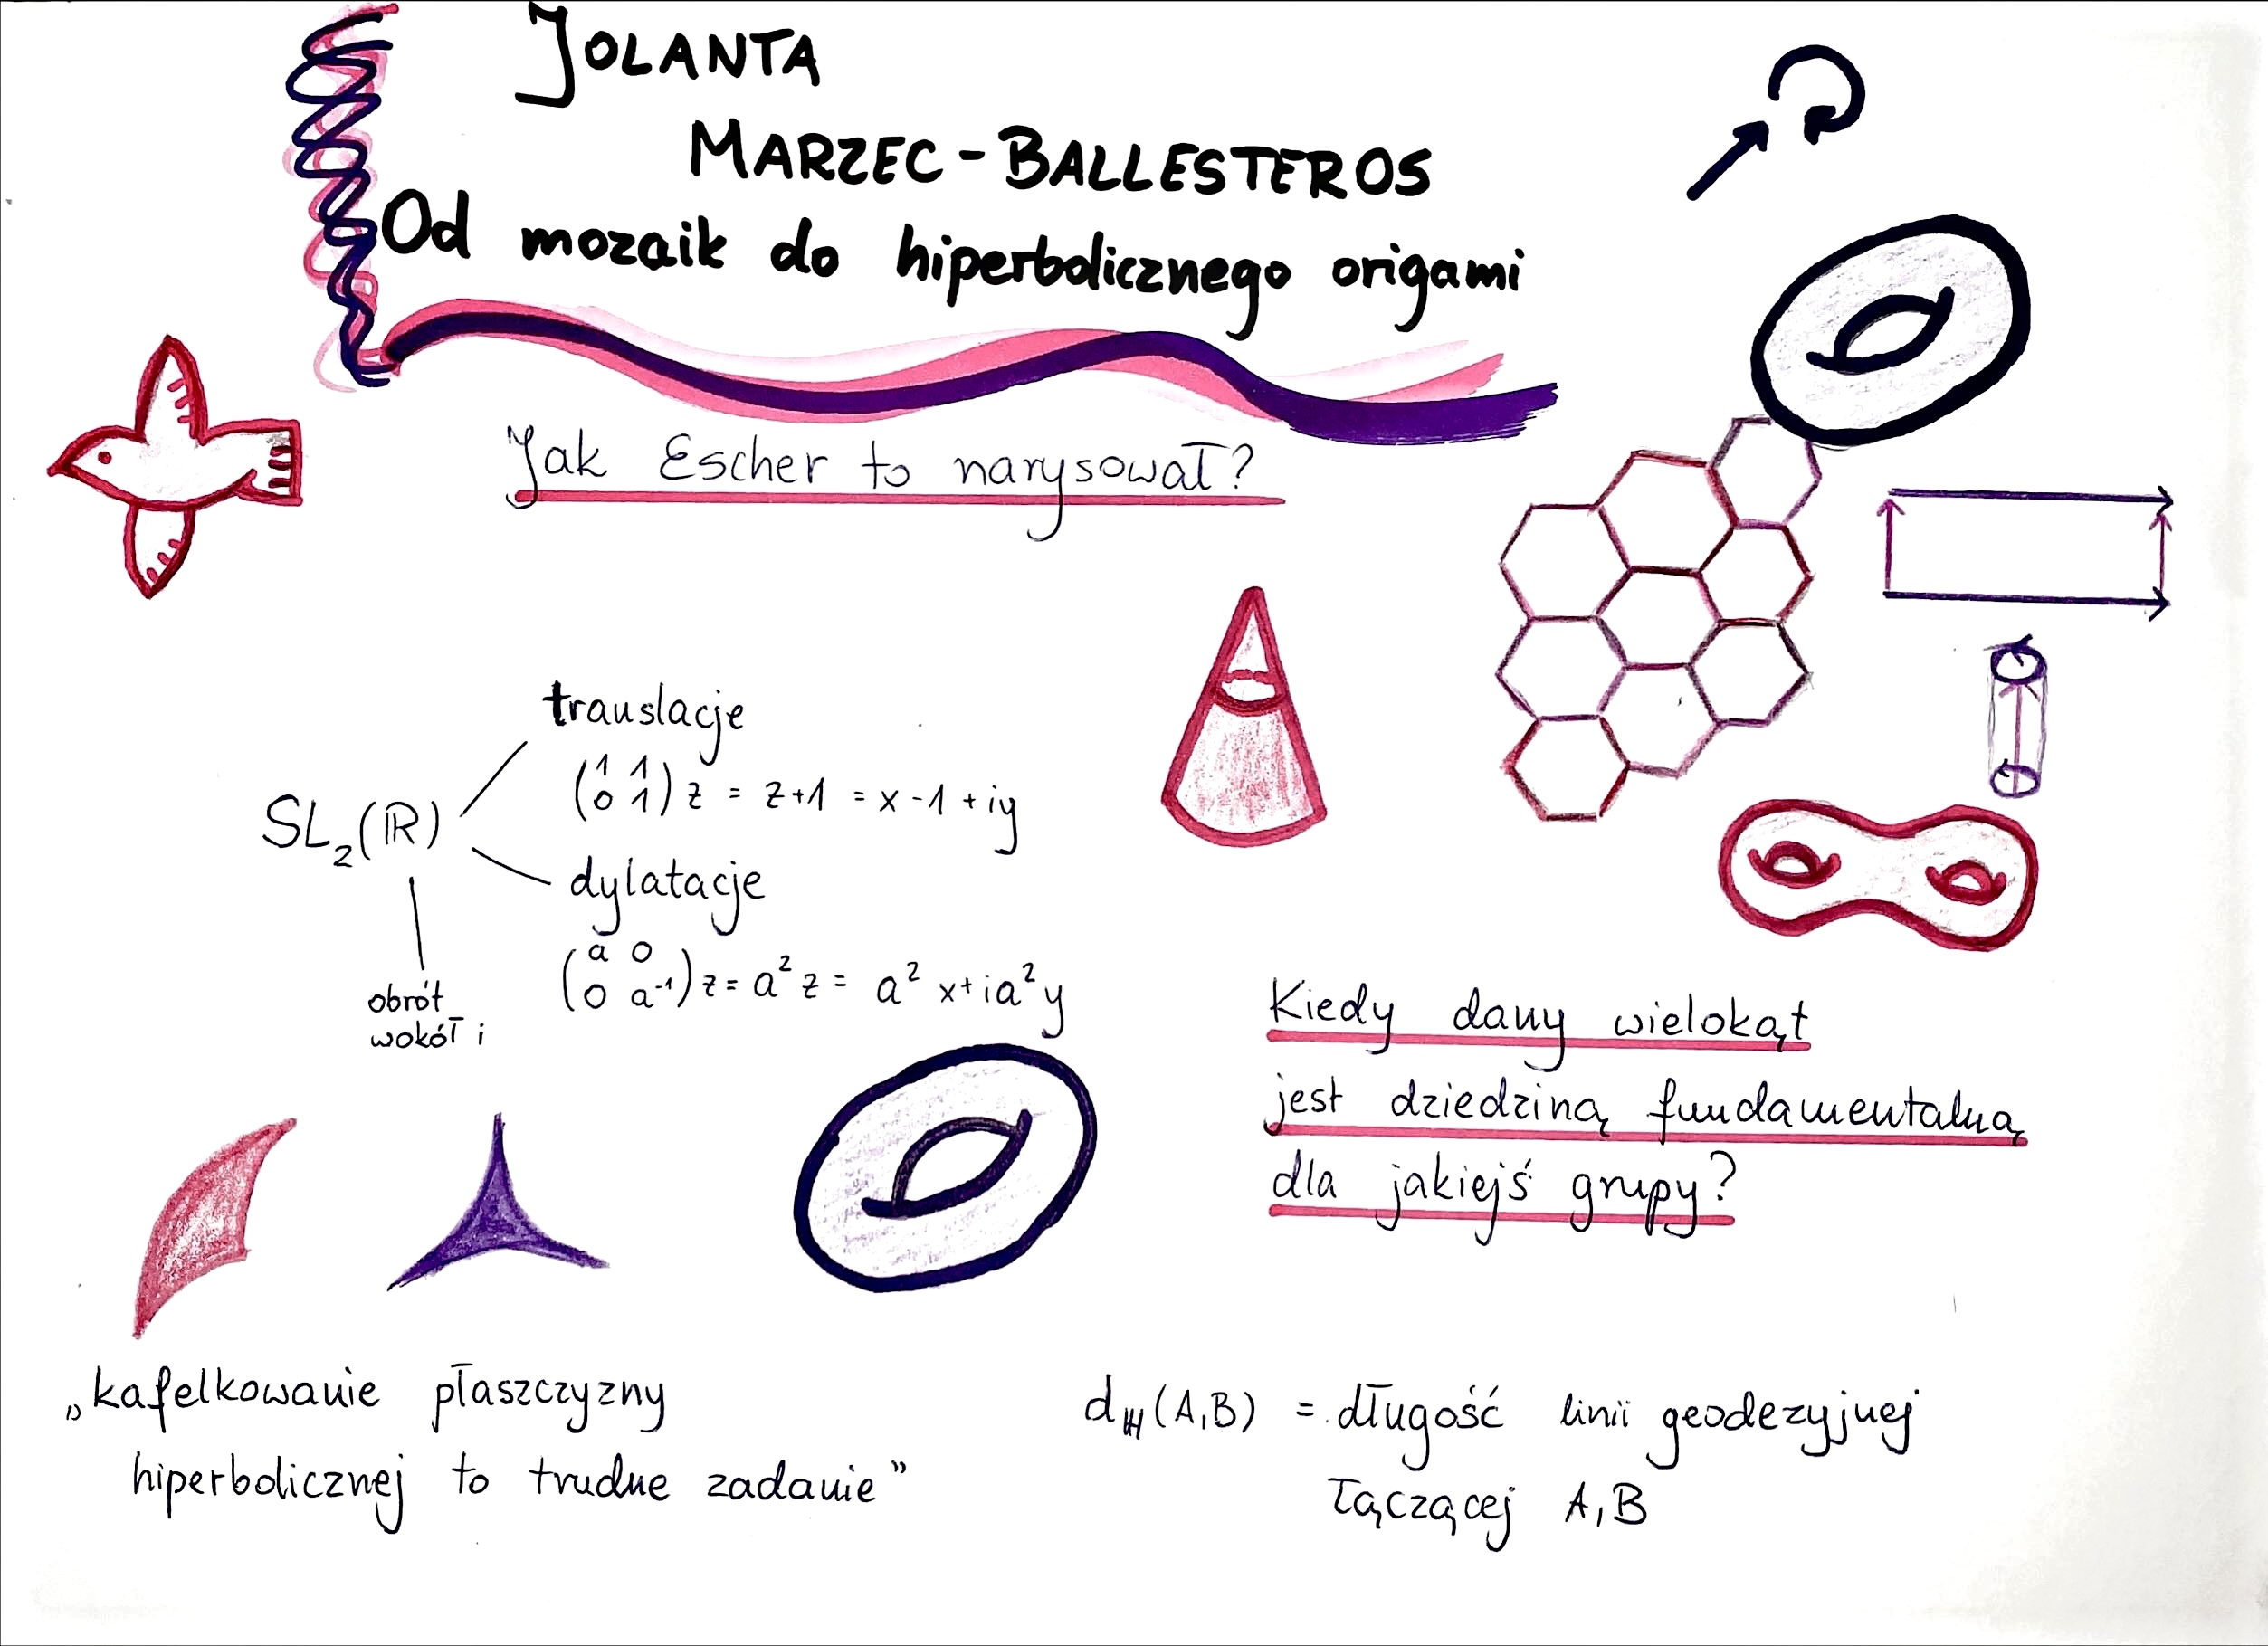 JOLANTA
MARZEC-BALLESTEROS
Od mozaik do hiperbolicznego origami
Jak Escher to narysował?
translacje
(1 1
0 1) z = z+1 = x-1+iy
SL₂(ℝ)
dylatacje
(a 0
0 a⁻¹) z = a² z = a² x+ia² y
obrót
wokół i
Kiedy dany wielokąt
jest dziedziną fundamentalną
dla jakiejś grupy?
„kafelkowanie płaszczyzny
hiperbolicznej to trudne zadanie”
d_ℍ(A,B) = długość linii geodezyjnej
łączącej A,B